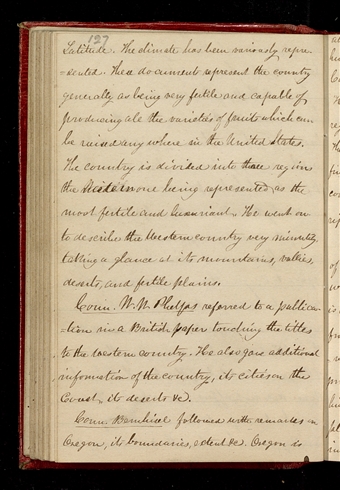 127
Latitude. The climate has been variously repre-
=sented. These documents represent the country
generally as being very fertile and capable of
producing all the varieties of fruits which can
be raised any where in the United States.
The country is divided into three regions
the Western one being represented as the
most fertile and luxuriant. He went on
to describe the Western country very minutely,
taking a glance at its mountains, vallies,
deserts, and fertile plains.
Coun. W. W. Phelps referred to a publica-
=tion in a British paper touching the titles
to the western country. He also gave additional
information of the country, its cities on the
Coast, its deserts &c.
Coun. Bernhisel followed with remarks on
Oregon, its boundaries, extent &c. Oregon is